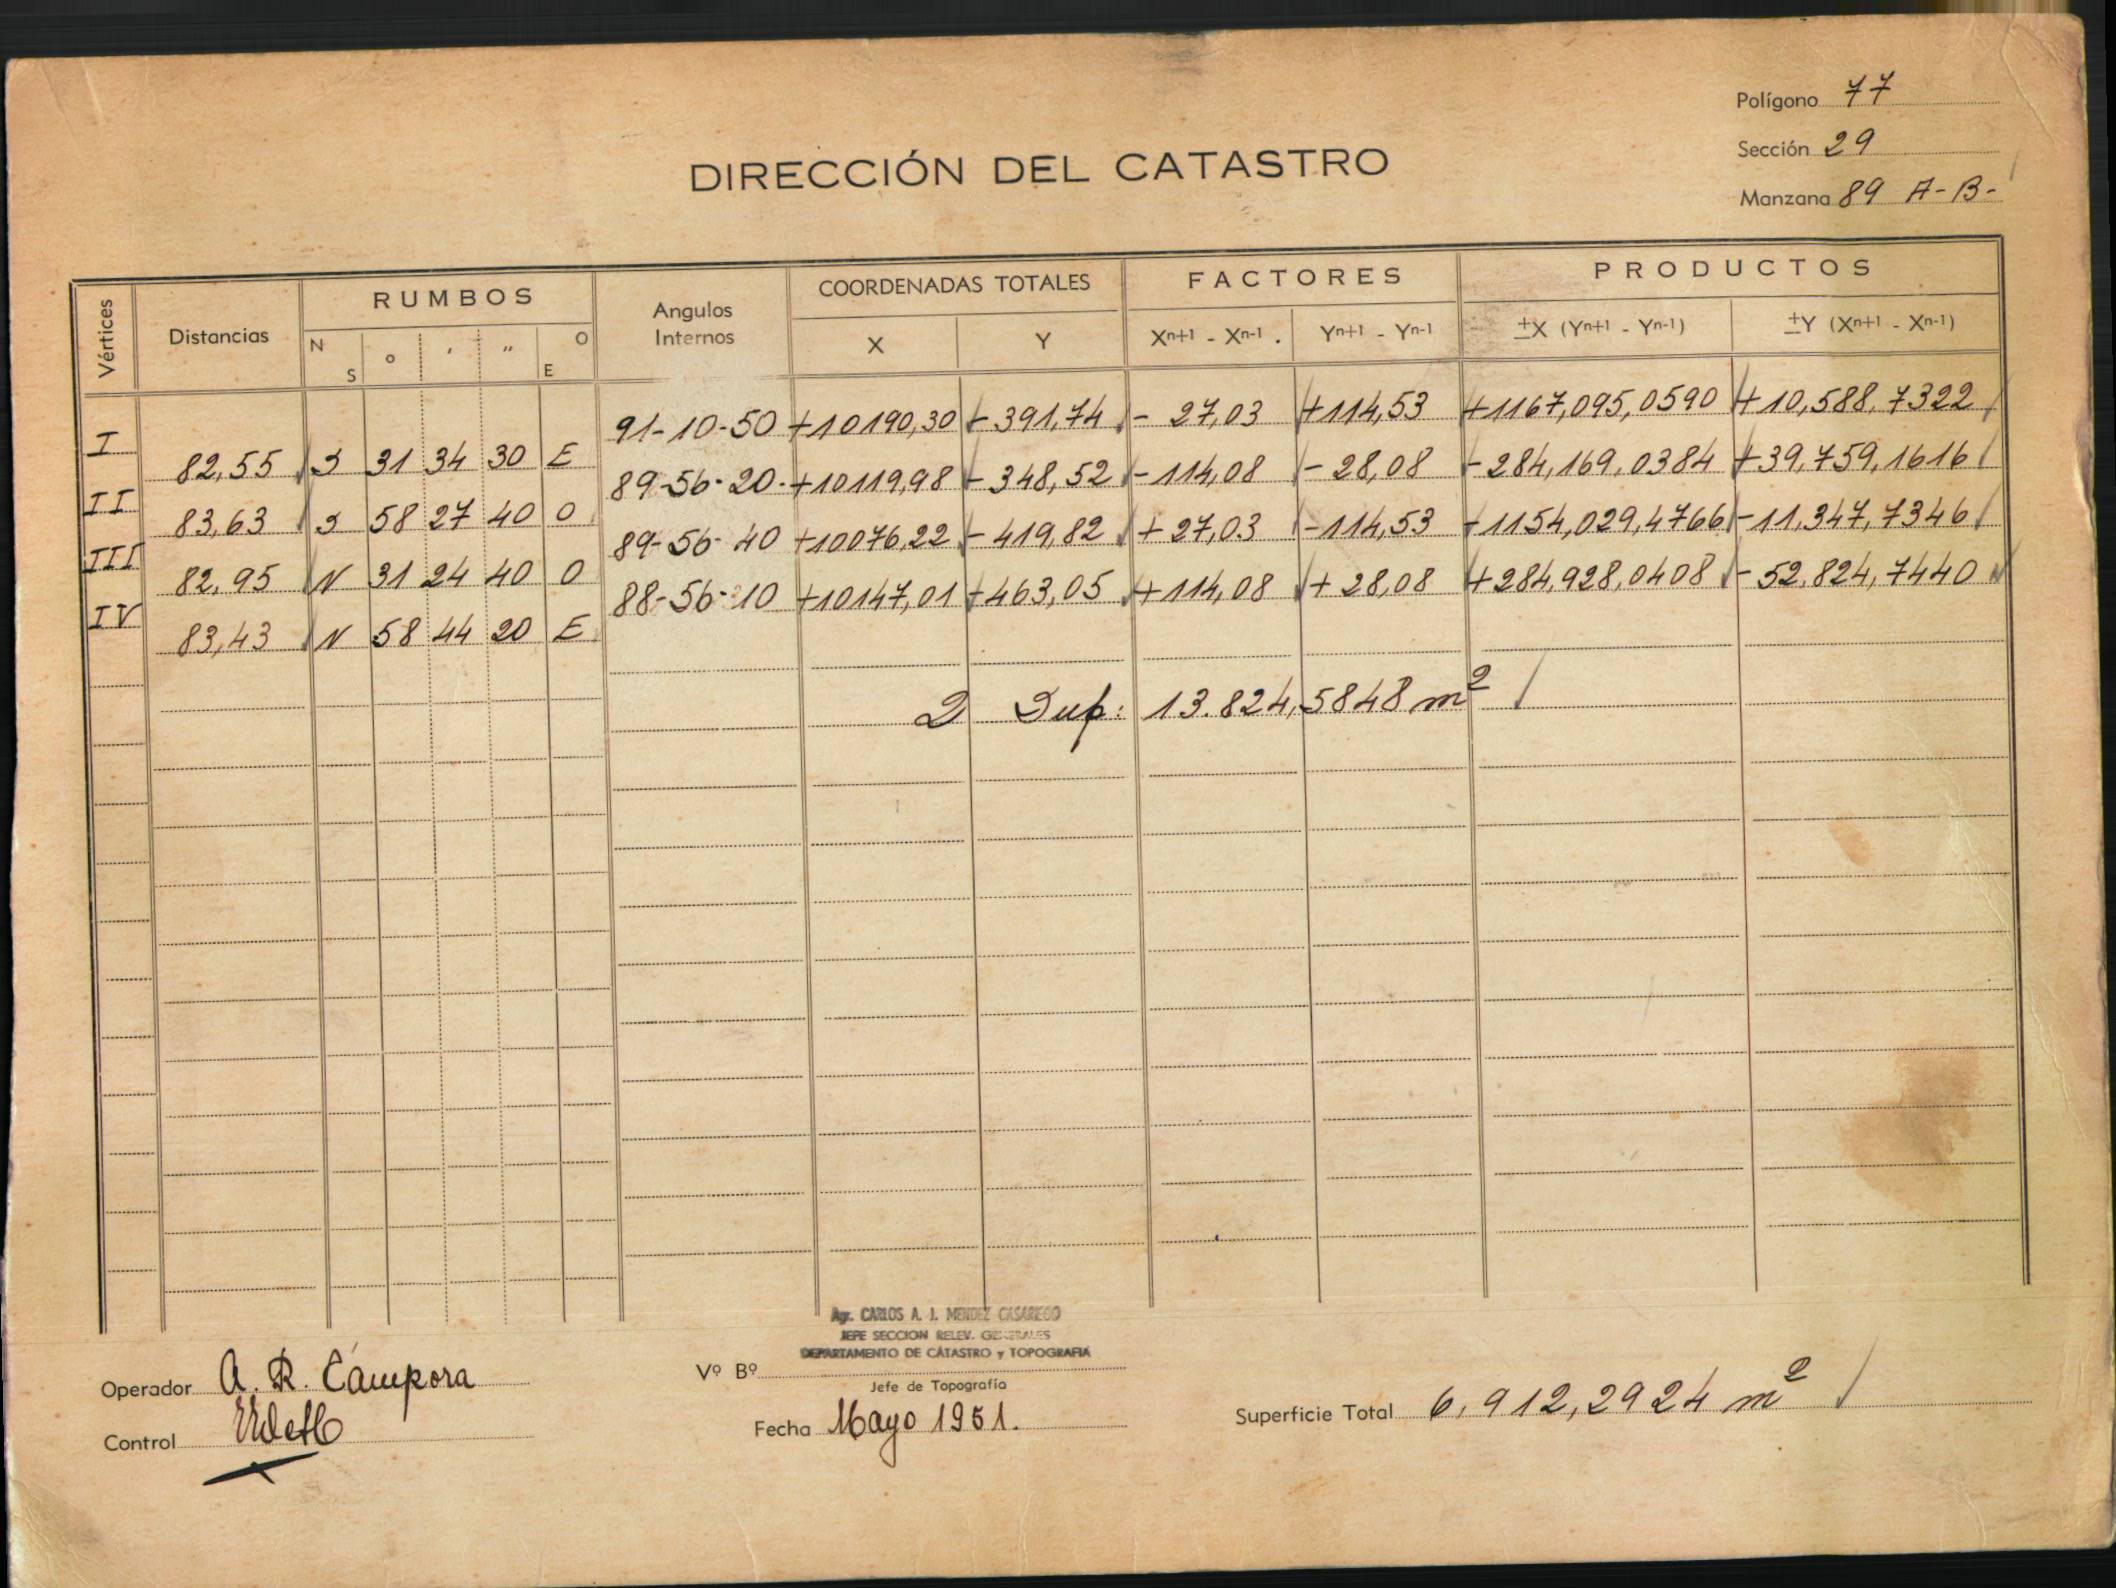 Polígono 77
Sección 29
Manzana 89 A-B-
DIRECCIÓN DEL CATASTRO
Vértices Distancias RUMBOS Angulos Internos COORDENADAS TOTALES FACTORES PRODUCTOS
N S ° ' " O E X Y Xn+1 - Xn-1. Yn+1 - Yn-1 ±X (Yn+1 - Yn-1) ±Y (Xn+1 - Xn-1)
I 91-10-50 +10190,30 -391,74 - 27,03 +114,53 +1167,095,0590 +10,588,7322
82,55 S 31 34 30 E
II 89-56-20- +10119,98 - 348,52 -114,08 - 28,08 - 284,169,0384 +39,759,1616
83,63 S 58 27 40 O
III 89-56-40 +10076,22 - 419,82 + 27,03 -114,53 -1154,029,4766 -11,347,7346
82,95 N 31 24 40 O
IV 88-56-10 +10147,01 -463,05 +114,08 + 28,08 +284,928,0408 - 52,824,7440
83,43 N 58 44 20 E
2 Sup: 13.824,5848 m²
Agr. CARLOS A. J. MENDEZ CASARIEGO
JEFE SECCION RELEV. GENERALES
DEPARTAMENTO DE CATASTRO y TOPOGRAFIA
Operador A. R. Cámpora
Vº Bº
Jefe de Topografía
Control
Fecha Mayo 1951.
Superficie Total 6,912,2924 m²